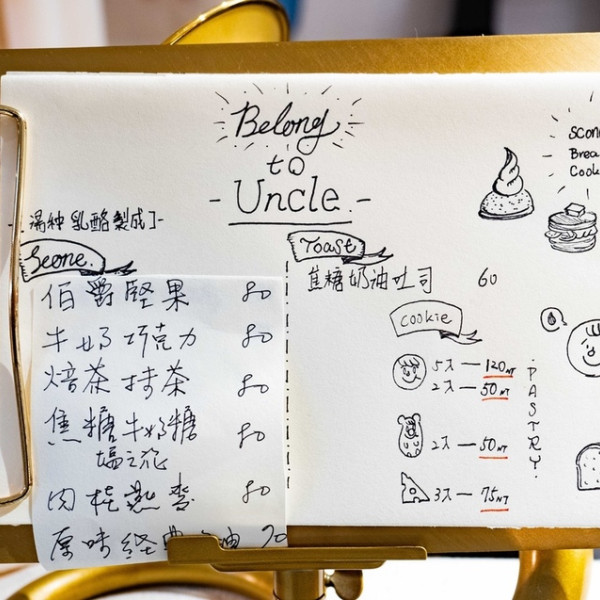 Belong
to
- Uncle. -
湯种乳酪製成]-
Scone.
伯爵堅果 80
牛奶巧克力 80
焙茶抹茶 80
焦糖牛奶糖 80
塩之花
肉桂燕麥 80
原味經典 70
Toast
焦糖奶油吐司 60
cookie
5入 — 120NT
2入 — 50NT
2入 — 50NT
3入 — 75NT
·PASTRY·
Scon
Brea
Cook